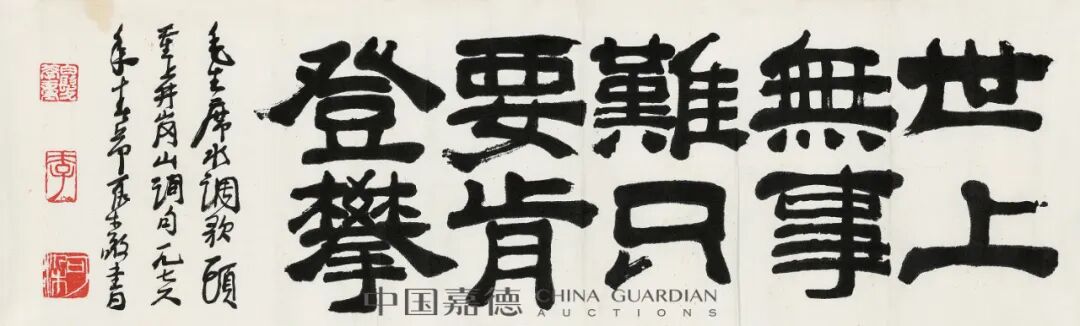 世上
無事
難只
要肯
登攀
毛主席水調歌頭
重上井岗山詞句一九七八
年十
中国嘉德 CHINA GUARDIAN
AUCTIONS